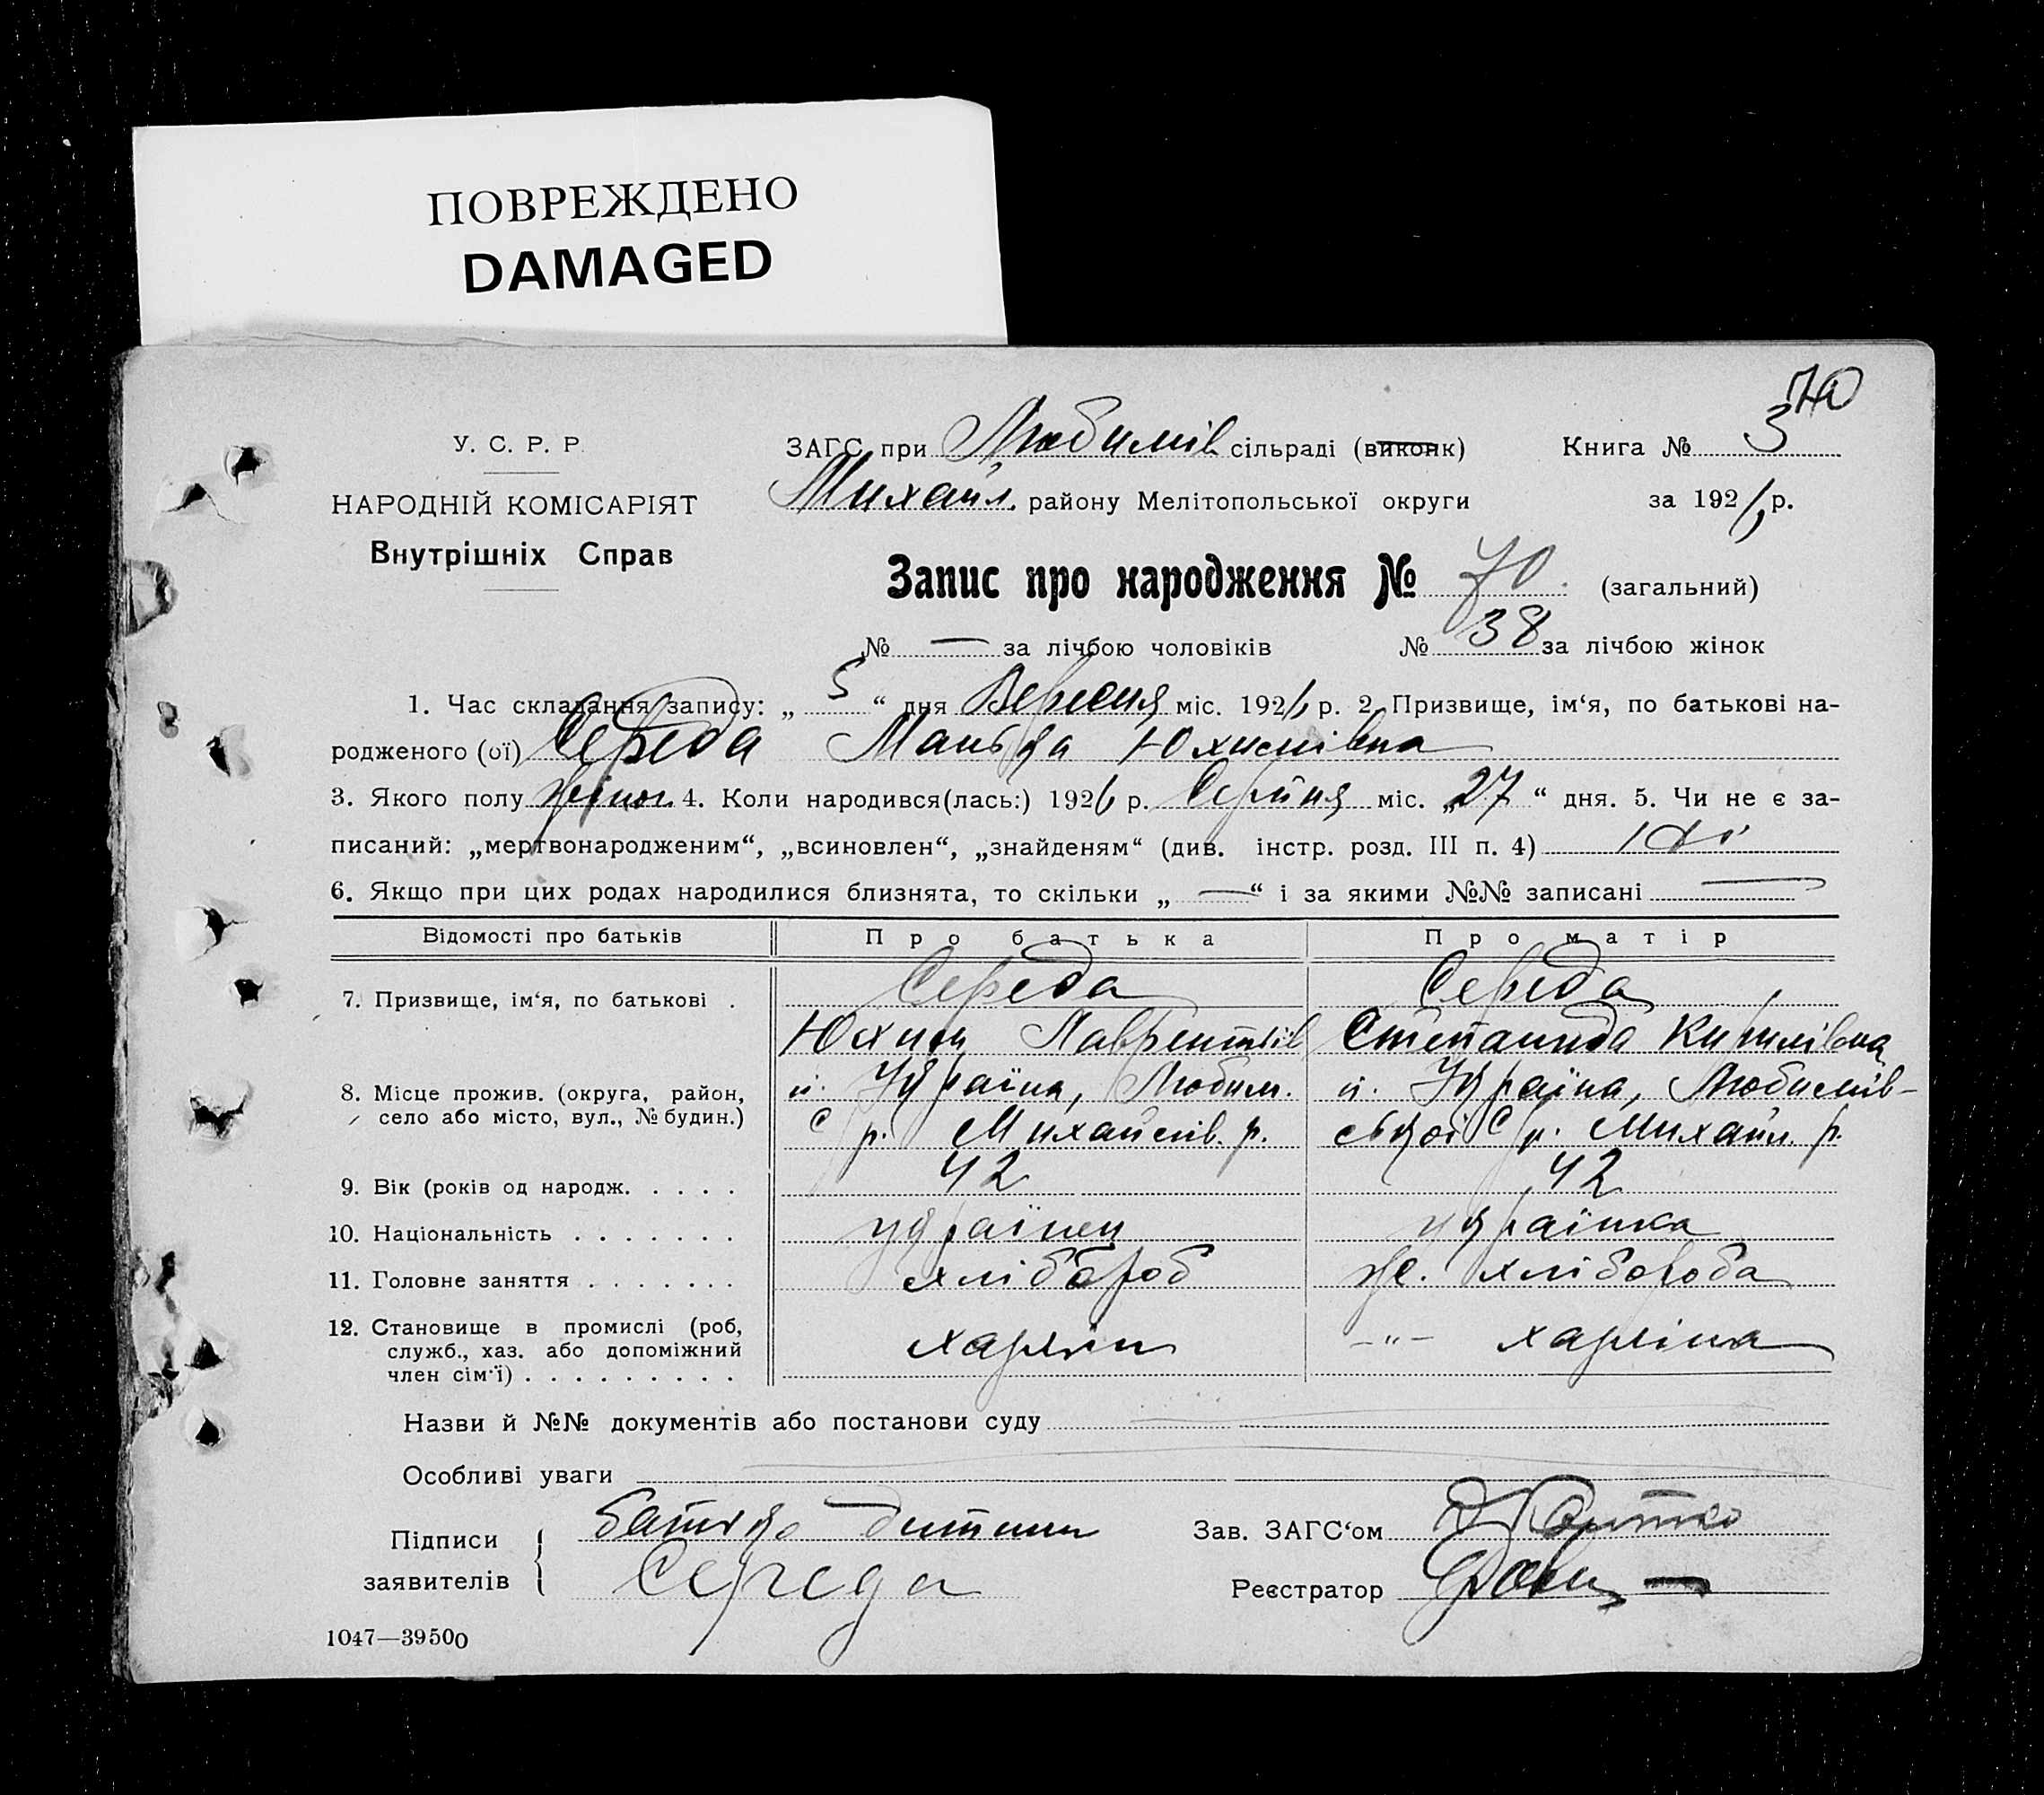 ПОВРЕЖДЕНО
DAMAGED
70
У. С. Р. Р.
НАРОДНІЙ КОМІСАРІЯТ
Внутрішніх Справ
ЗАГС при Любимів сільраді (виконк)
Книга № 3
Михайл. району Мелітопольської округи
за 1926 р.
Запис про народження № 70. (загальний)
№ — за лічбою чоловіків № 38 за лічбою жінок
1. Час складання запису: „ 5 “ дня Вересня міс. 1926 р. 2. Призвище, ім‘я, по батькові на-
родженого (ої) Середа Юхимівна
3. Якого полу жіноч. 4. Коли народився(лась:) 1926 р. Серпня міс. „27“ дня. 5. Чи не є за-
писаний: „мертвонародженим“, „всиновлен“, „знайденям“ (див. інстр. розд. III п. 4)
6. Якщо при цих родах народилися близнята, то скільки „ — “ і за якими №№ записані —
Відомості про батьків Про батька Про матір
7. Призвище, ім‘я, по батькові . Середа Середа
Юхим Лаврентіїв Степанида Кирилівна
8. Місце прожив. (округа, район, Україна, Любим. Україна, Любимів-
село або місто, вул., № будин.) с р. Михайлів. р. ської с р. Михайл. р.
9. Вік (років од народж. . . . . 42 42
10. Національність . . . . . . . українец українка
11. Головне заняття . . . . . . . хлібороб ж. хлібороба
12. Становище в промислі (роб,
служб., хаз. або допоміжний хазяїн -„- хазяїна
член сім‘ї) . . . . . . . . .
Назви й №№ документів або постанови суду
Особливі уваги
Підписи батько дитини
заявителів Середа
Зав. ЗАГС‘ом
Реєстратор
1047—39500